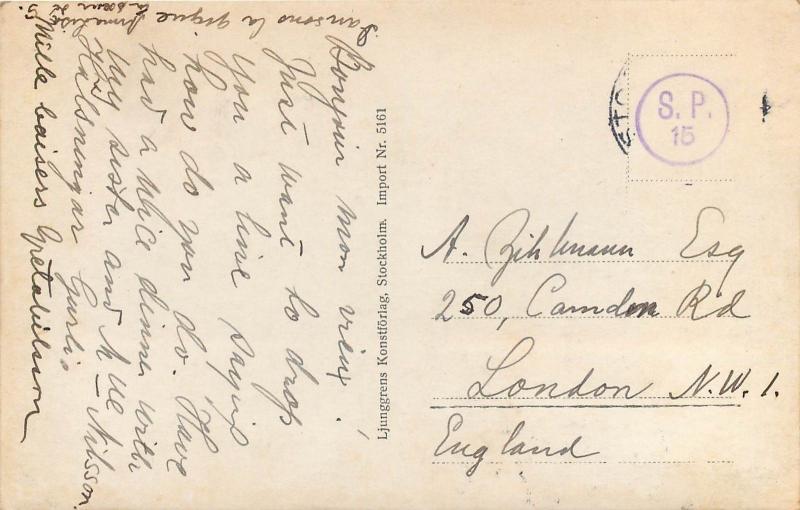 Bonjour mon vieux!
Just want to drop
you a line sayin
how do you do. Have
had a nice dinner with
my sister and Mlle Nilsson.
Hälsningar Gurli.
Mille baisers Greta Nilsson
Dansons la gigue
Ljunggrens Konstförlag, Stockholm. Import Nr. 5161
STO
S. P.
15
A. Zihlmann Esq
250, Camden Rd
London N.W.1.
England